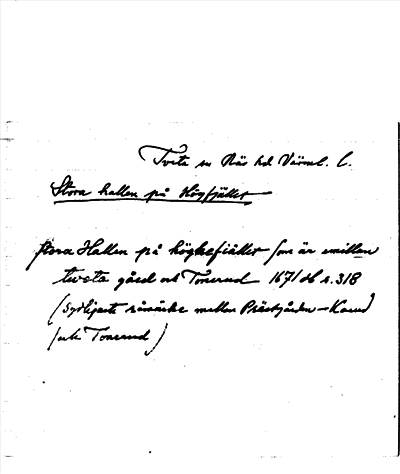 Tveta sn Näs hd Värml. l.
Stora hallen på Högfjället
stora Hallen på högkefiället som är emillan
tweta gård och Tonerud 1671 db s. 318
(sydligaste råmärke mellan Prästgården – 
och Tonerud)